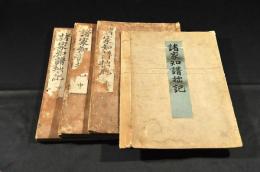 諸家知譜拙記
諸家知譜
中
諸家知譜拙記
諸家知譜拙記